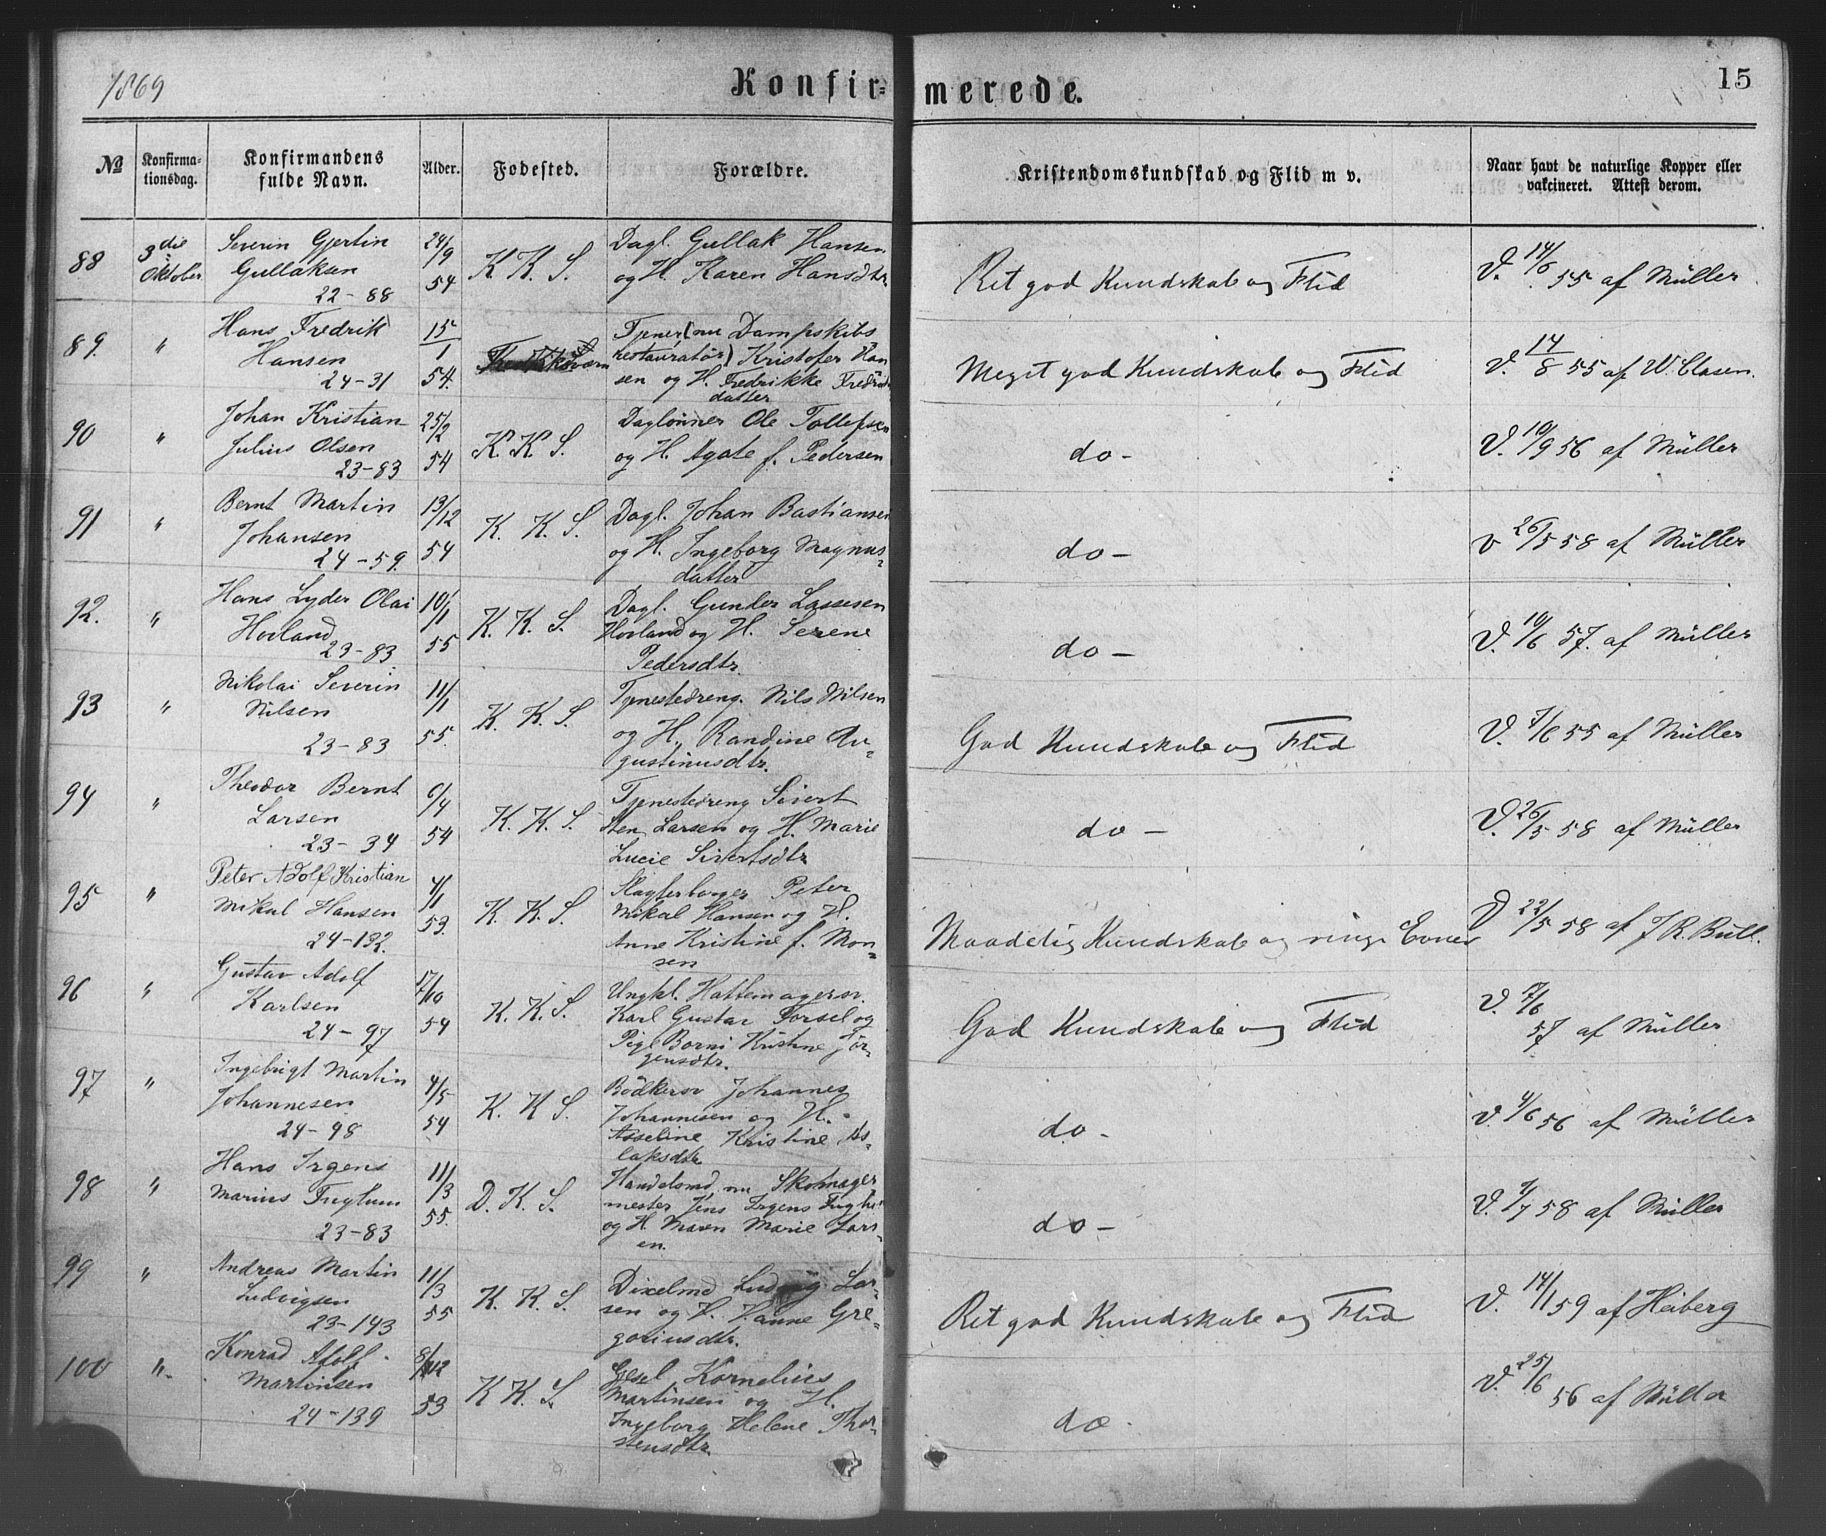 1869
Konfir=
merede.
15
No
Konfirma-
tionsdag.
Konfirmandens
fulde Navn.
Alder.
Fødested.
Forældre.
Kristendomskundskab og Flid m v.
Naar havt de naturlige Kopper eller
vakcineret. Attest derom.
88
3die
Oktober
Severin Gjertin
Gullaksen
22-88
24/9
54
K. K. S.
Dagl. Gullak Hansen
og H. Karen Hansdtr.
Ret god Kundskab og Flid
V. 14/6 55 af Müller
89.
"
Hans Fredrik
Hansen
24-31
15/1
54.
Tjener (nu Dampskibs
restauratør) Kristofer Han
sen og H. Fredrikke Fredriks
datter
Meget god Kundskab og Flid
V. 14/8 55 af W. Clasen.
90
"
Johan Kristian
Julius Olsen
23-83
25/2
54
K. K. S.
Daglønner Ole Tollefsen
og H. Agate f. Pedersen
do-
V. 10/9 56 af Müller
91
"
Bernt Martin
Johansen
24-59.
13/12
54
K. K. S.
Dagl. Johan Bastiansen
og H. Ingeborg Magnus=
datter
do-
V 26/5 58 af Müller
92.
"
Hans Lyder Olai
Hovland
23-83
10/1
55
K. K. S.
Dagl. Gunder Lassesen
Hovland og H. Serene
Pedersdtr.
do-
V. 10/6 57. af Müller
93
"
Nikolai Severin
Nilsen
23-83
11/1
55.
K. K. S.
Tjenestedreng. Nils Nilsen
og H. Randine Au
gustinusdtr.
God Kundskab og Flid
V. 7/6 55 af Müller
94
"
Theodor Bernt
Larsen
23-34
6/4
54
K. K. S.
Tjenestedreng Sivert
Sten Larsen og H. Marie
Lucie Sivertsdtr
do-
V. 26/5 58 af Müller
95
"
Peter Adolf Kristian
Mikal Hansen
24-132.
4/1
53.
K. K. S.
Slagterborger Peter
Mikal Hansen og H.
Anne Kristine f. Mon=
sen
Maadelig Kundskab og ringe Evner
V 22/5 58 af J R. Bull.
96
"
Gustav Adolf
Karlsen
24-97
17/10
54
K. K. S.
Ungkl. Hattemagersv.
Karl Gustav Forsel og
Pige Borni Kristine Jør-
gensdtr.
God Kundskab og Flid
V. 7/6
57 af Müller
97
"
Ingebrigt Martin
Johannesen
24-98
4/5
54
K. K. S.
Bødkersv Johannes
Johannesen og H.
Asseline Kristine As-
laksdtr
do-
V. 4/6 56 af Müller
98
"
Hans Irgens
Marius Fuglum
23-83
11/3
55.
D. K. S.
Handelsmd. nu Skomager
mester Jens Irgens
og H. Maren Marie Lars
en.
do-
V. 1/7 58 af Müller
99
"
Andreas Martin
Ludvigsen
23-143
11/3
55
K. K. S.
Ludvig Lar-
sen og H. Hanne Gre-
goriusdtr.
Ret god Kundskab og Flid
V. 14/1 59 af Heiberg
100
"
Konrad Adolf
Martinsen
24-139
8/12
53
K K. S.
Gesel Kornelius
Martinsen og H.
Ingeborg Helene Thor-
stensdtr.
do.
V. 25/6
56 af Müller